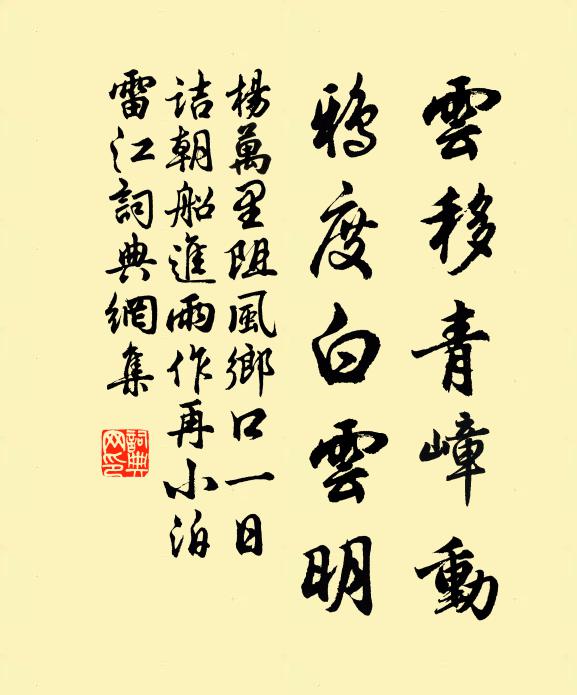 雲移青嶂動
鴉度白雲明
楊萬里阻風鄉口一日
詰朝船進雨作再小泊
雷江詞典網集
詞典
网印